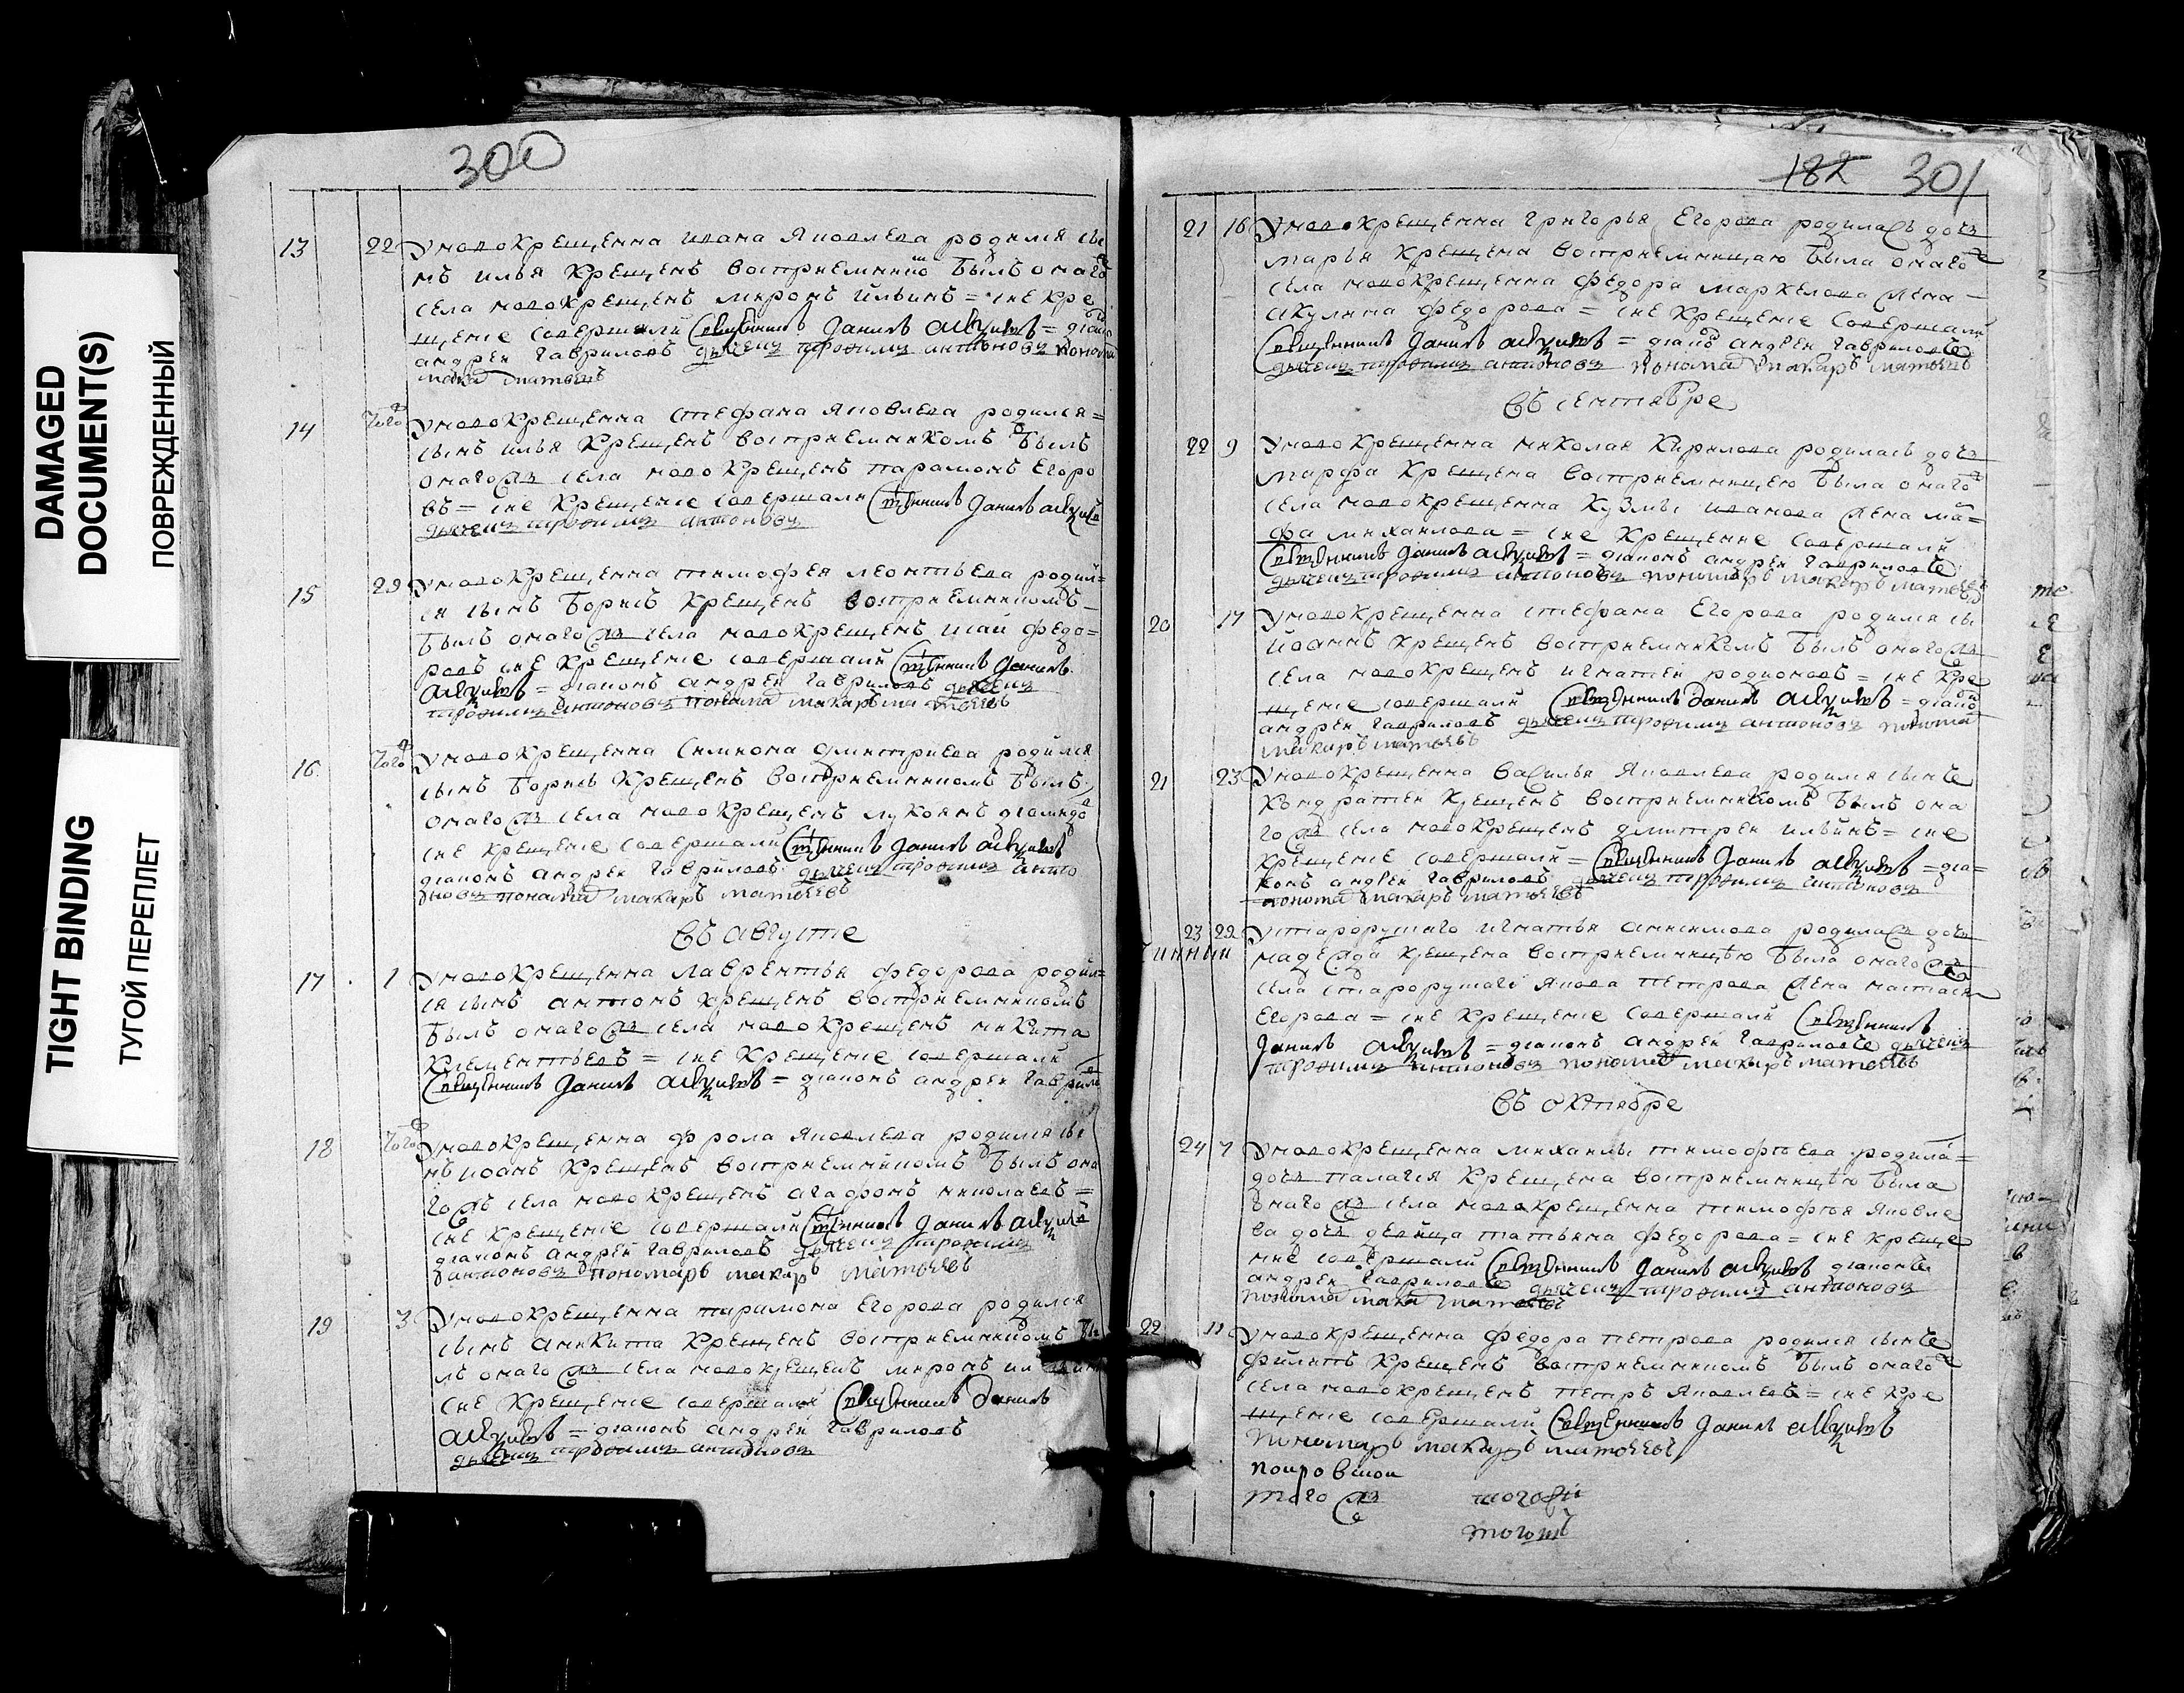 DAMAGED
DOCUMENT(S)
ПОВРЕЖДЕННЫЙ
TIGHT BINDING
ТУГОЙ ПЕРЕПЛЕТ
300
13 22 У новокрещенна ивана Яковлева родился сы
нъ илья крещенъ восприемником былъ онаго
села новокрещенъ миронъ ильинъ = сие кре
щение совершали Священникъ Данилъ = диако
андреи гавриловъ дьячекъ трофимъ антоновъ понома
мака матвеевъ
14 Того У новокрещенна стефана Яковлева родился =
сынъ илья крещенъ восприемникомъ былъ
онаго жъ села новокрещенъ парамонъ Егоро
въ = сие крещение совершали Священникъ Данилъ
дьячекъ трофимъ антоновъ
15 29 У новокрещенна тимофея леонтьева родил =
ся сынъ борисъ крещенъ восприемникомъ
былъ онаго жъ села новокрещенъ исаи федо =
ровъ сие крещение совершали Священникъ Данилъ
= диаконъ андреи гавриловъ дьячекъ
трофимъ антоновъ понома макаръ матвеевъ
16 Того У новокрещенна Симиона дмитриева родился
сынъ борисъ крещенъ восприемникомъ былъ
онаго жъ села новокрещенъ лукоянъ
сие крещение совершали Священникъ Данилъ
диаконъ андреи гавриловъ дьячекъ трофимъ анто
новъ понома макаръ матвеевъ
Въ августе
17 1 У новокрещенна лаврентья федорова родил =
ся сынъ антонъ крещенъ восприемникомъ
былъ онаго жъ села новокрещенъ никита
клементьевъ = сие крещение совершали
Священникъ Данилъ = диаконъ андреи гаврило
18 Того У новокрещенна фрола Яковлева родился сы
нъ иоанъ крещенъ восприемникомъ былъ она
го жъ села новокрещенъ агафонъ николаевъ =
сие крещение совершали Священникъ Данилъ
диаконъ андреи гавриловъ дьячекъ трофимъ
антоновъ пономарь макаръ матвеевъ
19 3 У новокрещенна парамона Егорова родился
сынъ аникита крещенъ восприемникомъ бы
лъ онаго жъ села новокрещенъ миронъ
сие крещение совершали Священникъ Данилъ
= диаконъ андреи гавриловъ
дьячекъ трофимъ антоновъ
182 301
21 16 У новокрещенна григорья Егорова родилась дочь
марья крещена восприемницаю была онаго
села новокрещенна федора маркелова жена =
акулина федорова = сие крещение совершали
Священникъ Данилъ = диако андреи гавриловъ
дьячекъ трофимъ антоновъ понома макаръ матвеевъ
Въ сентябре
22 9 У новокрещенна николая Кирилова родилась дочь
марфа крещена восприемницею была онаго
села новокрещенна Кузмы иванова жена ма =
фа михаилова = сие крещение совершали
Священникъ Данилъ = диаконъ андреи гавриловъ
дьячекъ трофимъ антоновъ пономарь макаръ матвеевъ
20 17 У новокрещенна стефана Егорова родился сы
иоаннъ крещенъ восприемникомъ былъ онаго жъ
села новокрещенъ игнатеи родионовъ = сие кре
щение совершали Священникъ Данилъ = диако
андреи гавриловъ дьячекъ трофимъ антоновъ понома
макаръ матвеевъ
21 23 У новокрещенна василья Яковлева родился сынъ
кондратеи крещенъ восприемникомъ былъ она
го жъ села новокрещенъ дмитреи ильинъ = сие
крещение совершали = Священникъ Данилъ = диа =
конъ андреи гавриловъ дьячекъ трофимъ антоновъ
понома макаръ матвеевъ
23 22 У старорускаго игнатья анисимова родилася дочь
надежда крещена восприемницею была онаго жъ
села старорускаго якова петрова жена настась
Егорова = сие крещение совершали Священникъ
Данилъ = диаконъ андреи гавриловъ дьячекъ
трофимъ антоновъ понома макаръ матвеевъ
Въ октябре
24 7 У новокрещенна михаилы тимофеева родила =
дочь палагея крещена восприемницею была
онаго жъ села новокрещенна тимофея яковле
ва дочь девица татьяна федорова = сие креще
ние совершали Священникъ Данилъ диаконъ
андреи гавриловъ дьячекъ трофимъ антоновъ
понома мака матвеевъ
22 11 У новокрещенна федора петрова родился сынъ
филипъ крещенъ восприемникомъ былъ онаго
села новокрещенъ петръ яковлевъ = сие кре
щение совершали Священникъ Данилъ
пономарь макаръ матвеевъ
того жъ